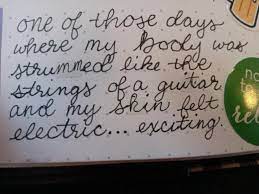 one of those days
where my body was
strummed like the
strings of a guitar
and my skin felt
electric... exciting.
no
to
rel